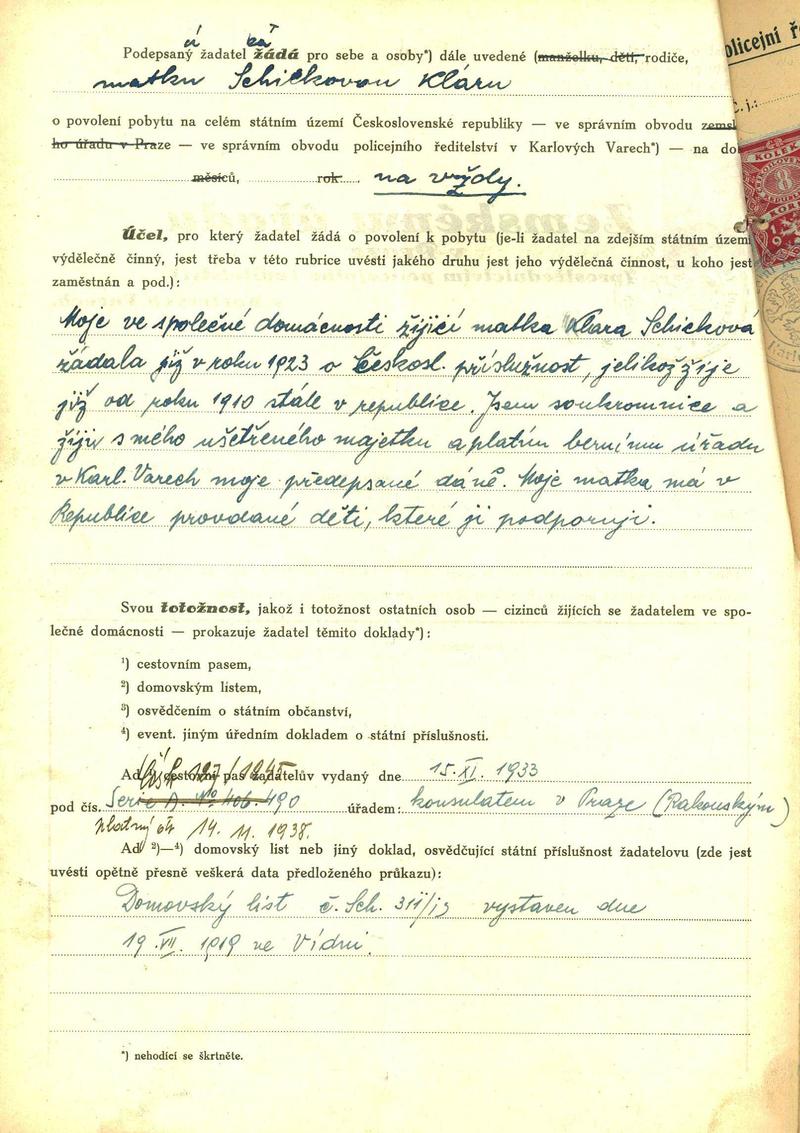 Podepsaný á žadatel ka žádá pro sebe a osoby*) dále uvedené (manželku, děti, rodiče,
matku Schickovou Kláru
o povolení pobytu na celém státním území Československé republiky — ve správním obvodu zemsk
ho úřadu v Praze — ve správním obvodu policejního ředitelství v Karlových Varech*) — na do
měsíců, rok na vždy.
Účel, pro který žadatel žádá o povolení k pobytu (je-li žadatel na zdejším státním územ
výdělečně činný, jest třeba v této rubrice uvésti jakého druhu jest jeho výdělečná činnost, u koho jest
zaměstnán a pod.):
Moje ve společné domácnosti žijící matka Klara Schicková
žádala již v roku 1923 o Českosl. příslužnost, jelikož žije
již od roku 1910 stále v republice. Jsem soukromnice a
žiji s mého ušetřeného majetku a platím bernímu úřadu
v Karl. Varech moje předepsané daně. Moje matka má v
Republice provdané děti, které ji podporuji.
Svou totožnost, jakož i totožnost ostatních osob — cizinců žijících se žadatelem ve spo-
lečné domácnosti — prokazuje žadatel těmito doklady*):
¹) cestovním pasem,
²) domovským listem,
³) osvědčením o státním občanství,
⁴) event. jiným úředním dokladem o státní příslušnosti.
Ad ¹) cestovní pas žadatelův vydaný dne 15. XI. 1933
pod čís. Serie A. No 406.490 úřadem: konsulatem v Praze (Rakouským)
platný do 14. 11. 1938.
Ad ²)—⁴) domovský list neb jiný doklad, osvědčující státní příslušnost žadatelovu (zde jest
uvésti opětně přesně veškerá data předloženého průkazu):
Domovský list č. Sch. 311/19 vystaven dne
19. VII. 1919 ve Vídni.
*) nehodící se škrtněte.
olicejní ř
č. j.:
KOLEK
8